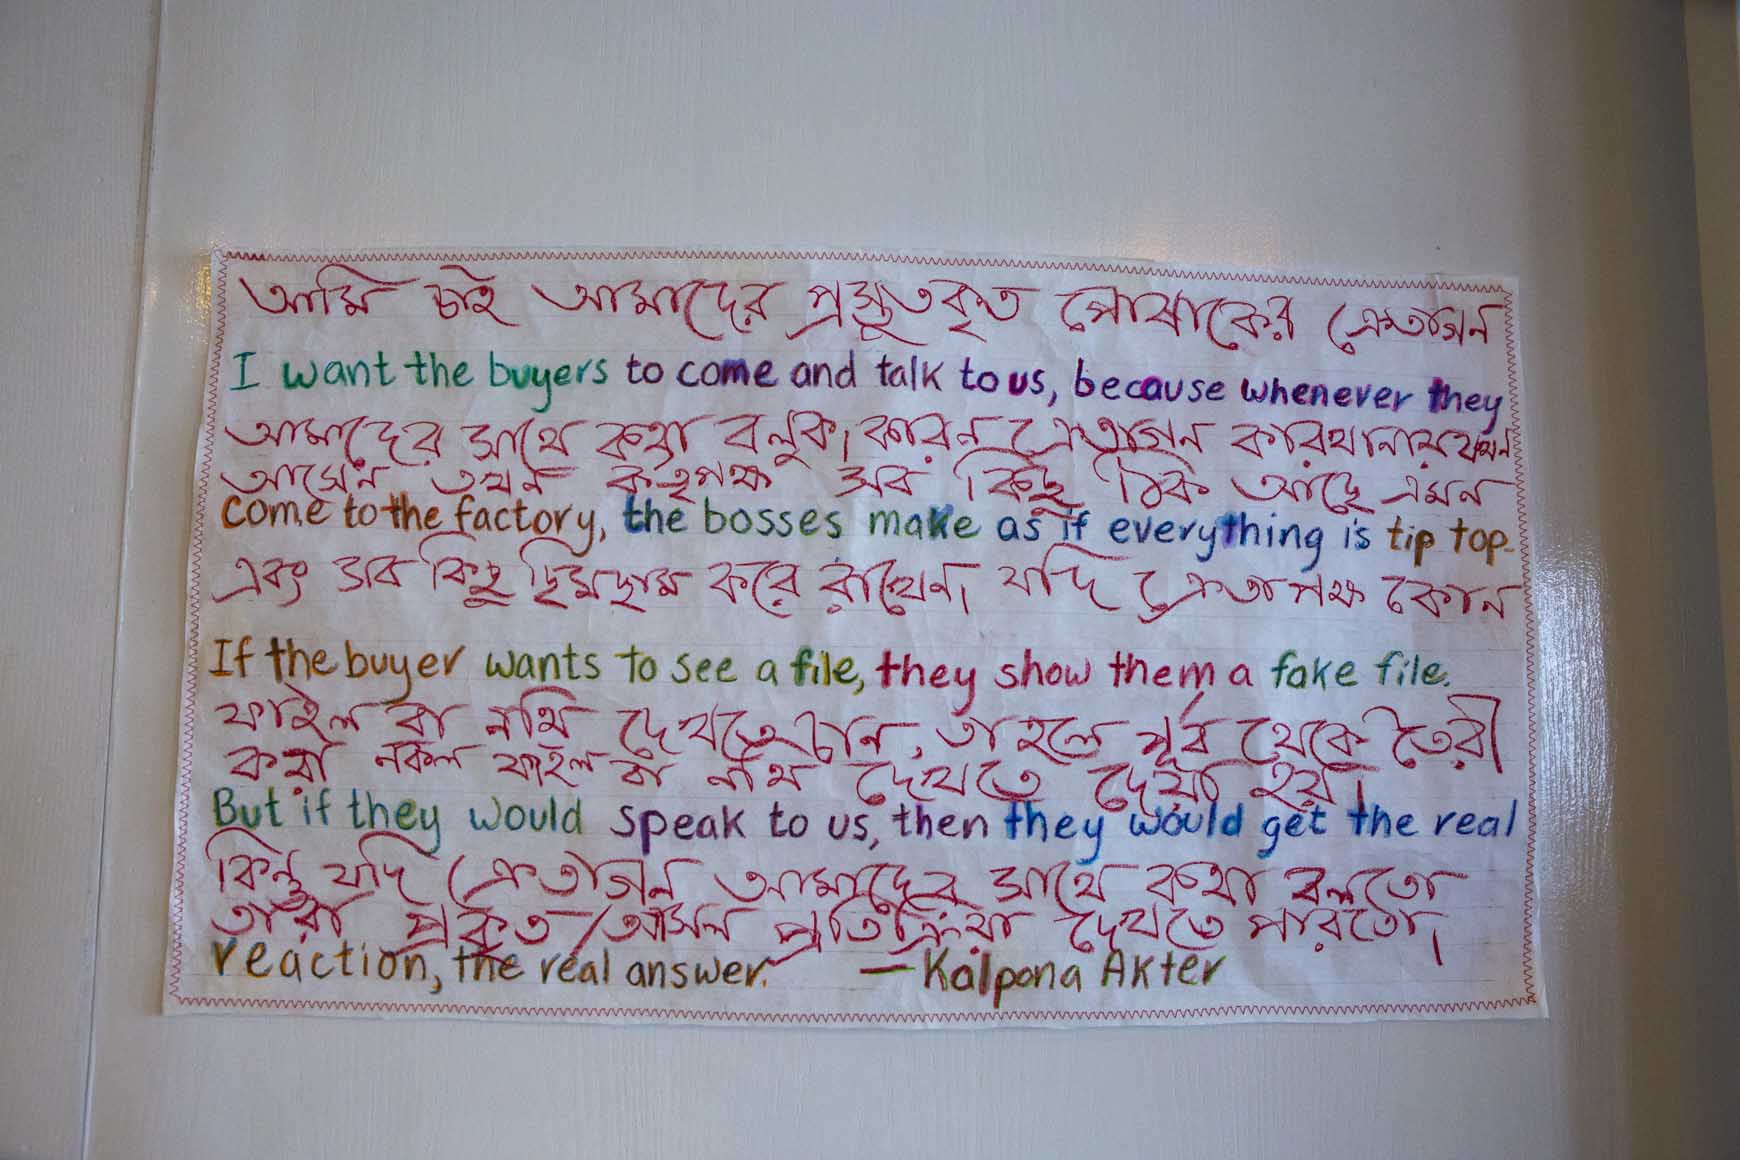 আমি চাই আমাদের প্রস্তুতকৃত পোষাকের ক্রেতাগন
I want the buyers to come and talk to us, because whenever they
আমাদের সাথে কথা বলুক, কারন ক্রেতাগন কারখানায় যখন
আসেন তখন কতৃপক্ষ সব কিছু ঠিক আছে এমন
come to the factory, the bosses make as if everything is tip top.
এবং সব কিছু ছিমছাম করে রাখেন। যদি ক্রেতাপক্ষ কোন
If the buyer wants to see a file, they show them a fake file.
ফাইল বা নথি দেখতে চান, তা হলে পূর্ব থেকে তৈরী
করা নকল ফাইল বা নথি দেখতে দেয়া হয়।
But if they would speak to us, then they would get the real
কিন্তু যদি ক্রেতাগন আমাদের সাথে কথা বলতো
তারা প্রকৃত/আসল প্রতিক্রিয়া দেখতে পারতো।
reaction, the real answer. — Kalpona Akter